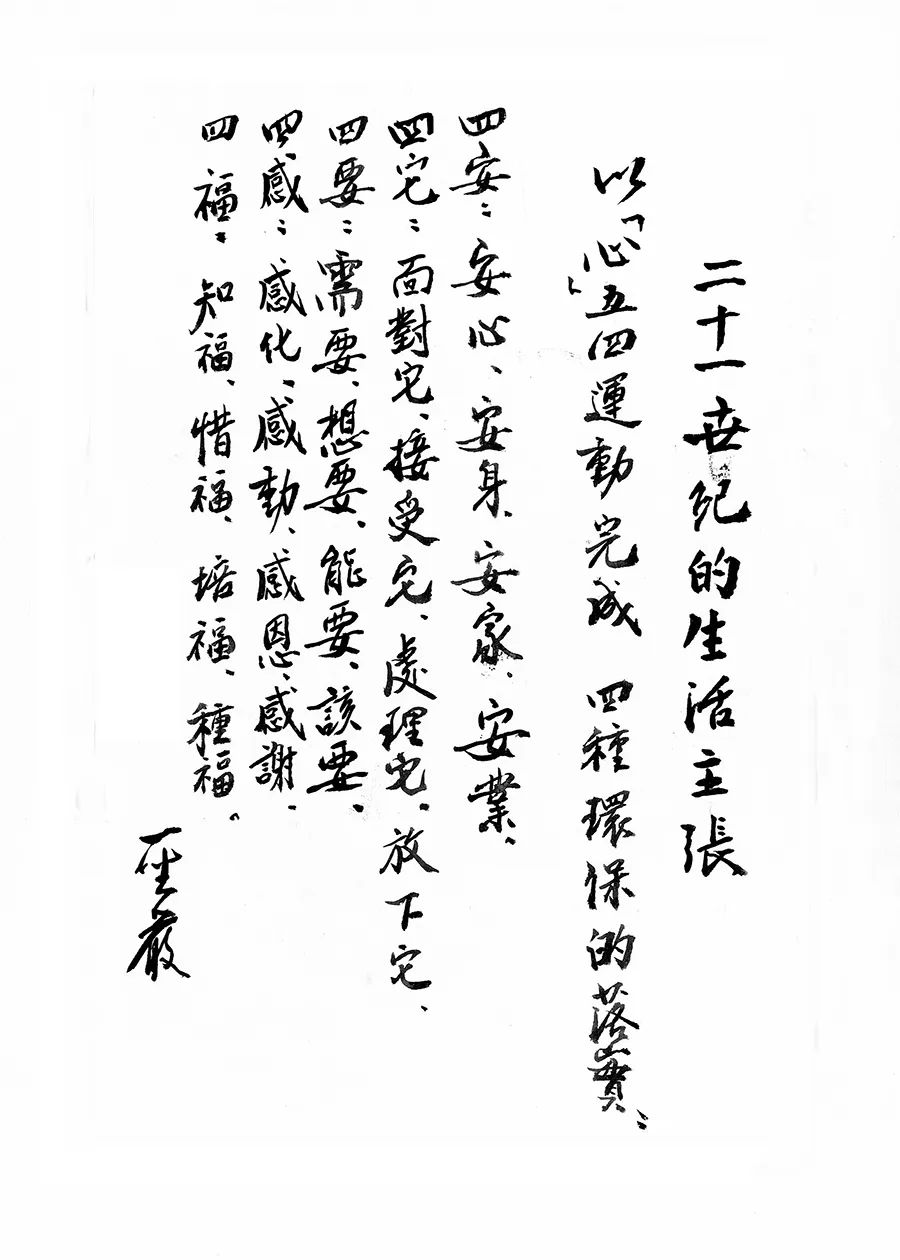 二十一世紀的生活主張
以「心」五四運動完成 四種環保的落實：
四安：安心、安身、安家、安業、
四它：面對它、接受它、處理它、放下它、
四要：需要、想要、能要、該要、
四感：感化、感動、感恩、感謝、
四福：知福、惜福、培福、種福。
聖嚴